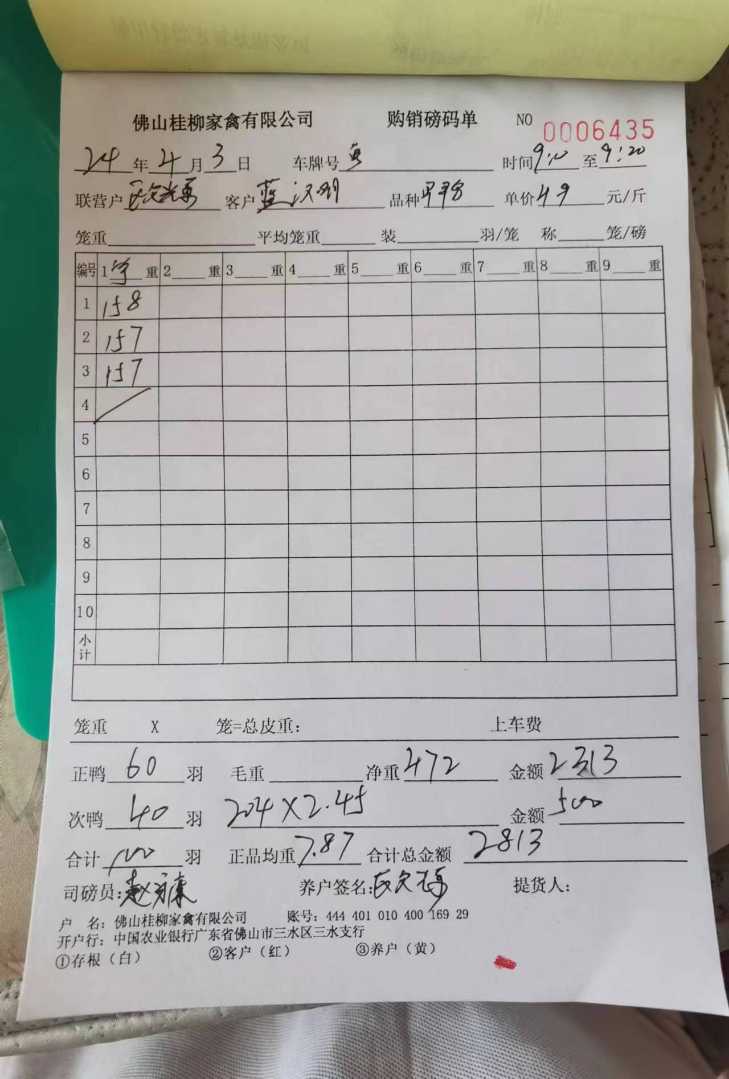 佛山桂柳家禽有限公司 购销磅码单 NO 0006435
24年4月3日 车牌号 时间9:10至9:20
联营户 客户 品种 单价4.9元/斤
笼重 平均笼重 装 羽/笼 称 笼/磅
编号 1 重 2 重 3 重 4 重 5 重 6 重 7 重 8 重 9 重
1 158
2 157
3 157
4
5
6
7
8
9
10
小计
笼重 X 笼=总皮重: 上车费
正鸭60羽 毛重 净重472 金额2313
次鸭40羽 204×2.45 金额500
合计100羽 正品均重7.87 合计总金额2813
司磅员: 养户签名: 提货人:
户 名: 佛山桂柳家禽有限公司 账号: 444 401 010 400 169 29
开户行: 中国农业银行广东省佛山市三水区三水支行
①存根(白) ②客户(红) ③养户(黄)